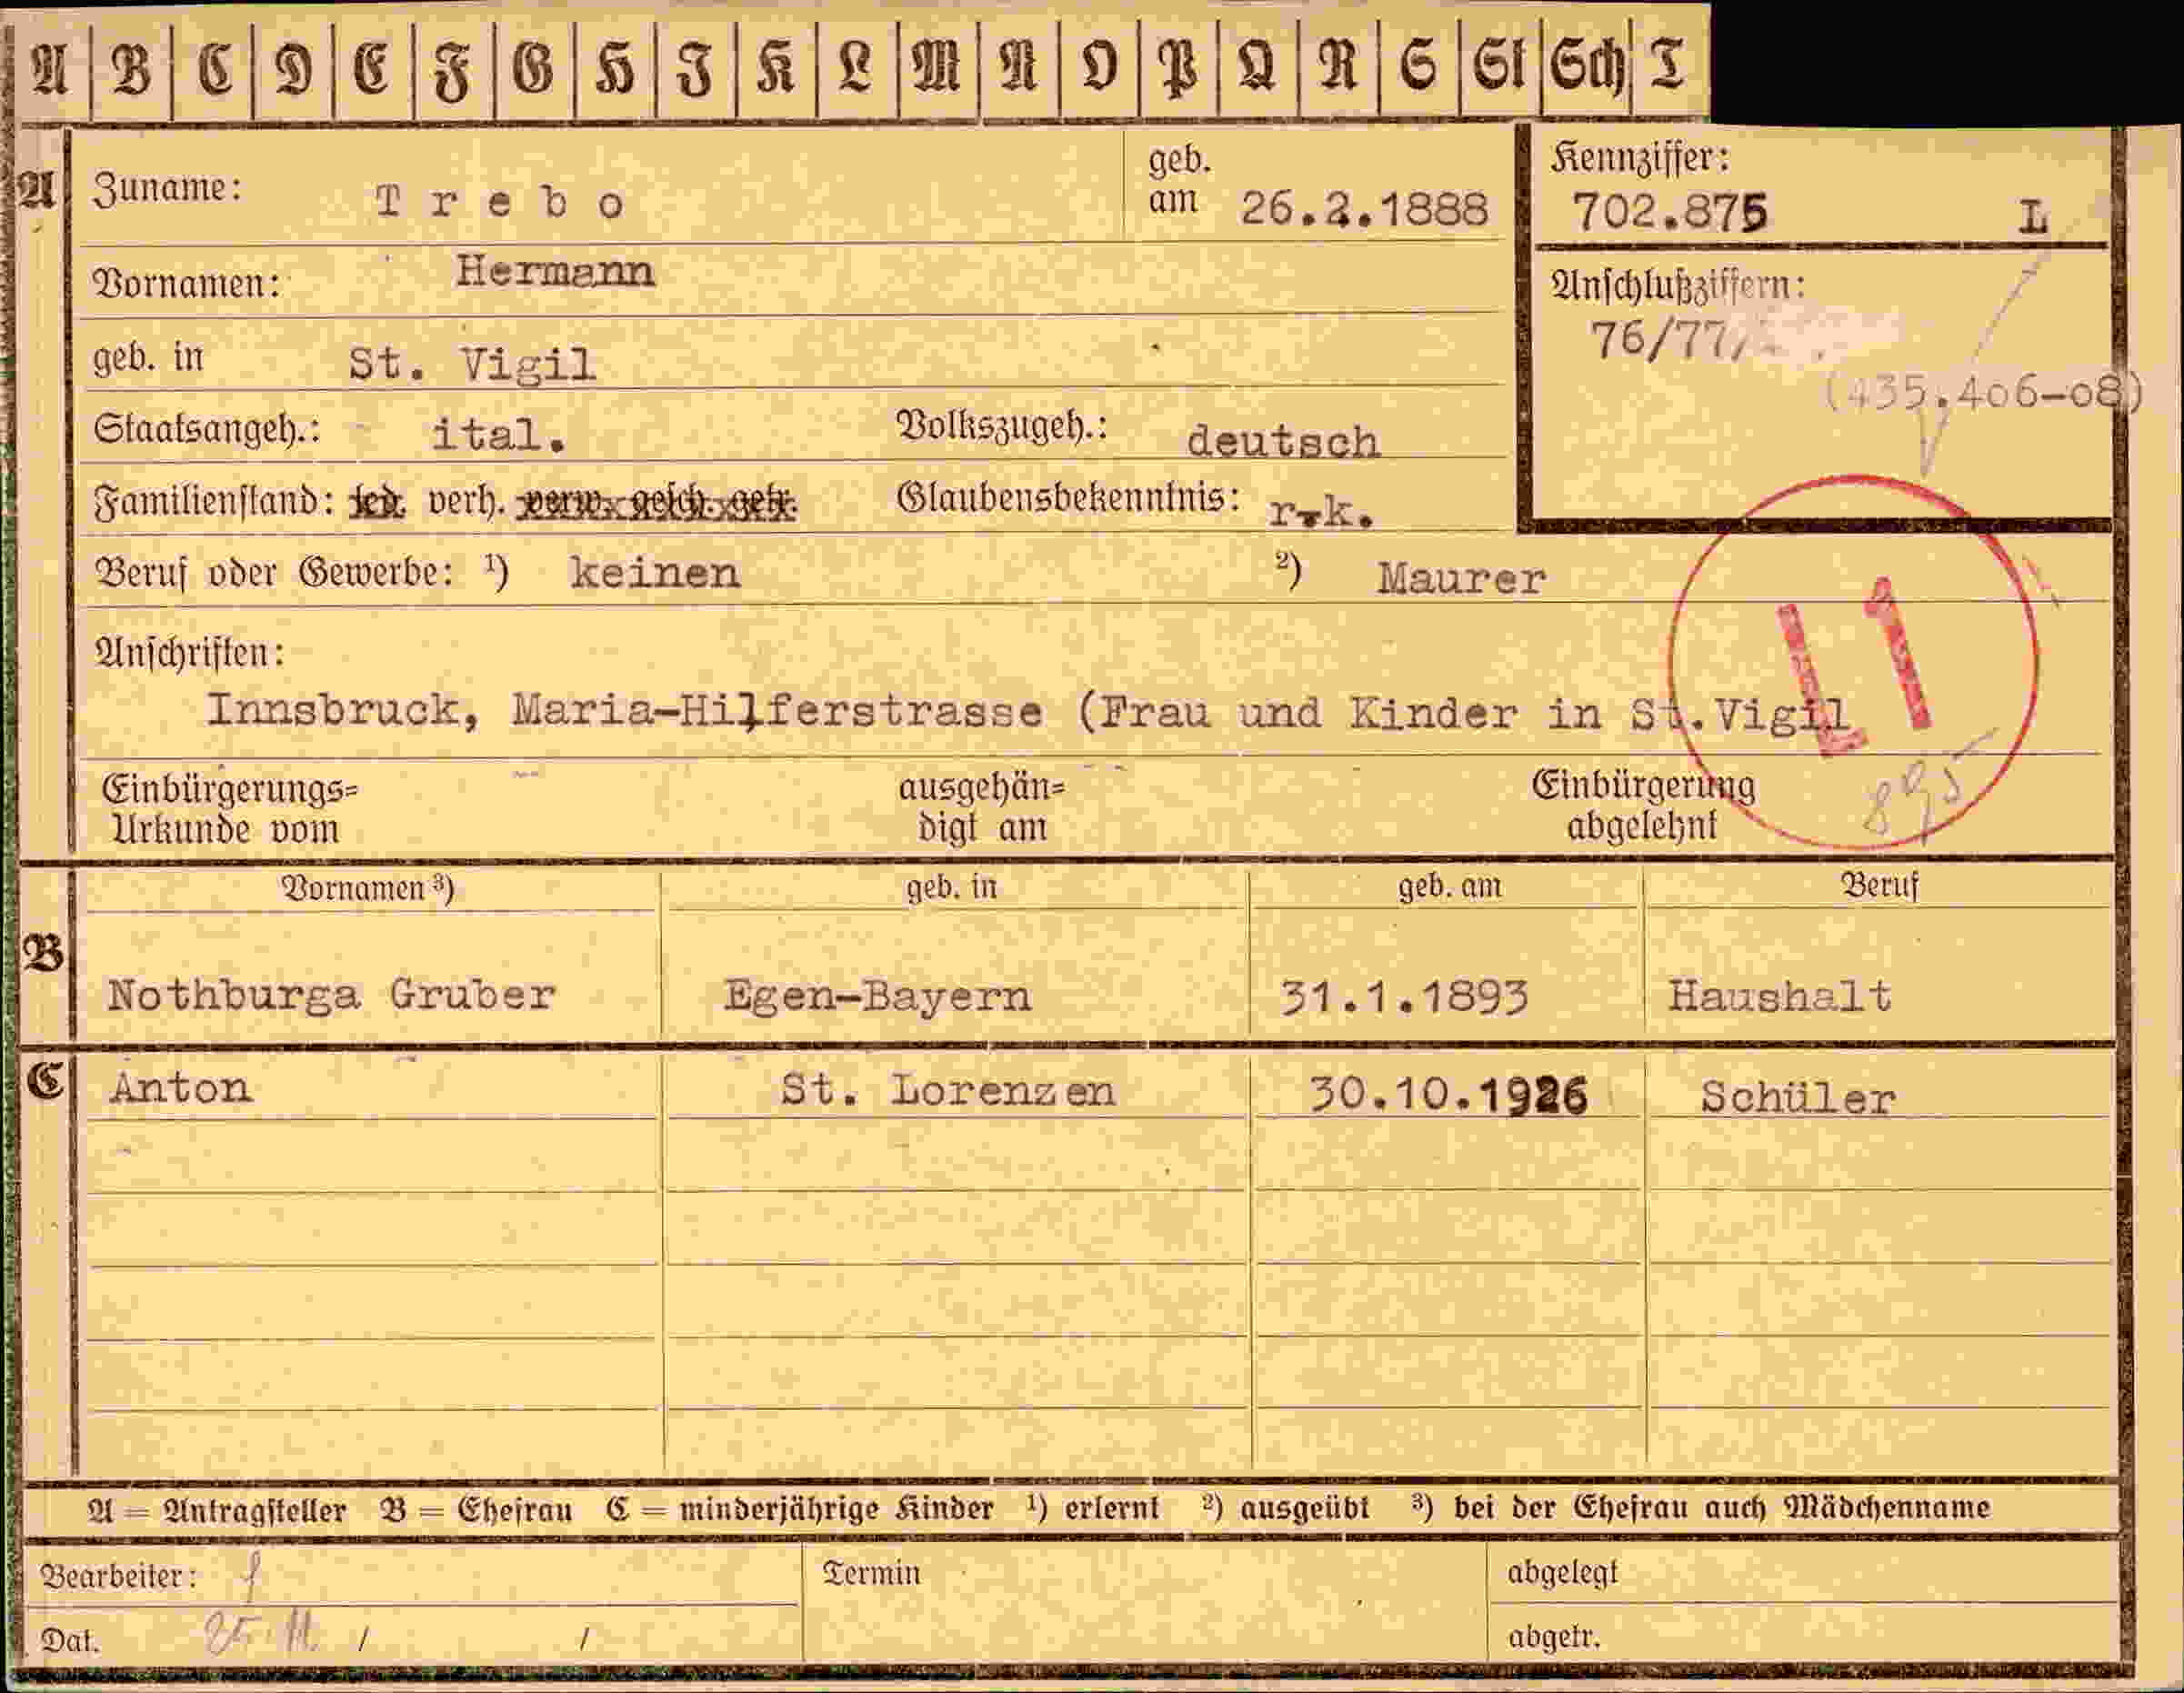 A B C D E F G H J K L M N O P Q R S St Sch T
A
Zuname: Trebo
geb. am 26.2.1888
Kennziffer:
702.875 L
Vornamen: Hermann
Anschlußziffern:
76/77
(435.406-08)
geb. in St. Vigil
Staatsangeh.: ital. Volkszugeh.: deutsch
Familienstand: led. verh. verw. gesch. getr. Glaubensbekenntnis: r.k.
Beruf oder Gewerbe: ¹) keinen ²) Maurer
L1
Anschriften:
Innsbruck, Maria-Hilferstrasse (Frau und Kinder in St.Vigil
895
Einbürgerungs=
Urkunde vom
ausgehän=
digt am
Einbürgerung
abgelehnt
B
Vornamen ³) geb. in geb. am Beruf
Nothburga Gruber Egen-Bayern 31.1.1893 Haushalt
C
Anton St. Lorenzen 30.10.1926 Schüler
A = Antragsteller B = Ehefrau C = minderjährige Kinder ¹) erlernt ²) ausgeübt ³) bei der Ehefrau auch Mädchenname
Bearbeiter:
Termin
abgelegt
Dat. 25.11. / /
abgetr.